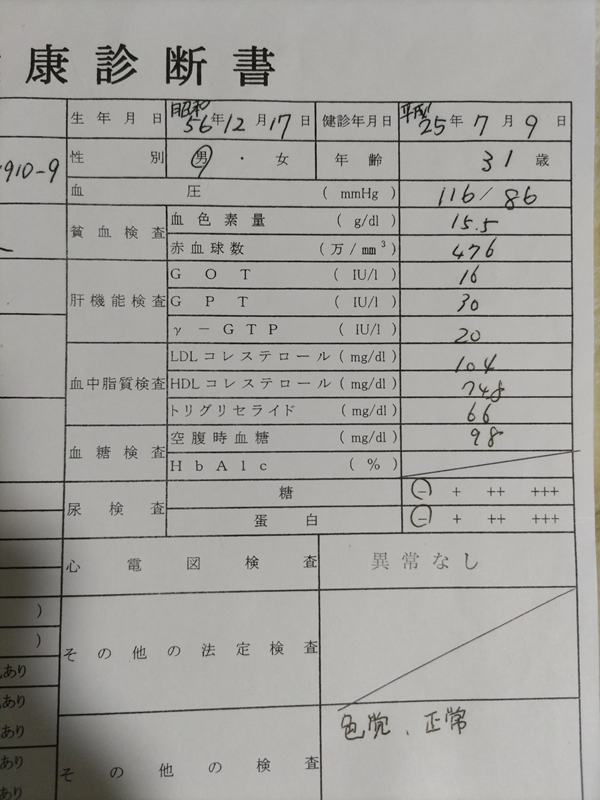 康診断書
生年月日 昭和56年12月17日 健診年月日 平成25年7月9日
910-9 性別 男・女 年齢 31歳
血圧 (mmHg) 116/86
貧血検査 血色素量 (g/dl) 15.5
赤血球数 (万/mm³) 476
肝機能検査 GOT (IU/l) 16
GPT (IU/l) 30
γ-GTP (IU/l) 20
血中脂質検査 LDLコレステロール (mg/dl) 104
HDLコレステロール (mg/dl)
トリグリセライド (mg/dl) 66
血糖検査 空腹時血糖 (mg/dl) 98
HbA1c (%)
尿検査 糖 - + ++ +++
蛋白 - + ++ +++
心電図検査 異常なし
)
)
その他の法定検査
あり
あり
あり
色覚、正常
あり
その他の検査
あり